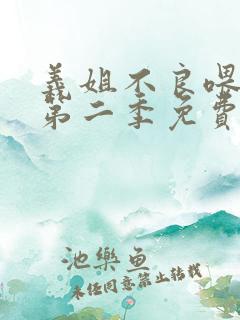 義姐不良喂
第二季免費
池樂魚
未经同意禁止转载